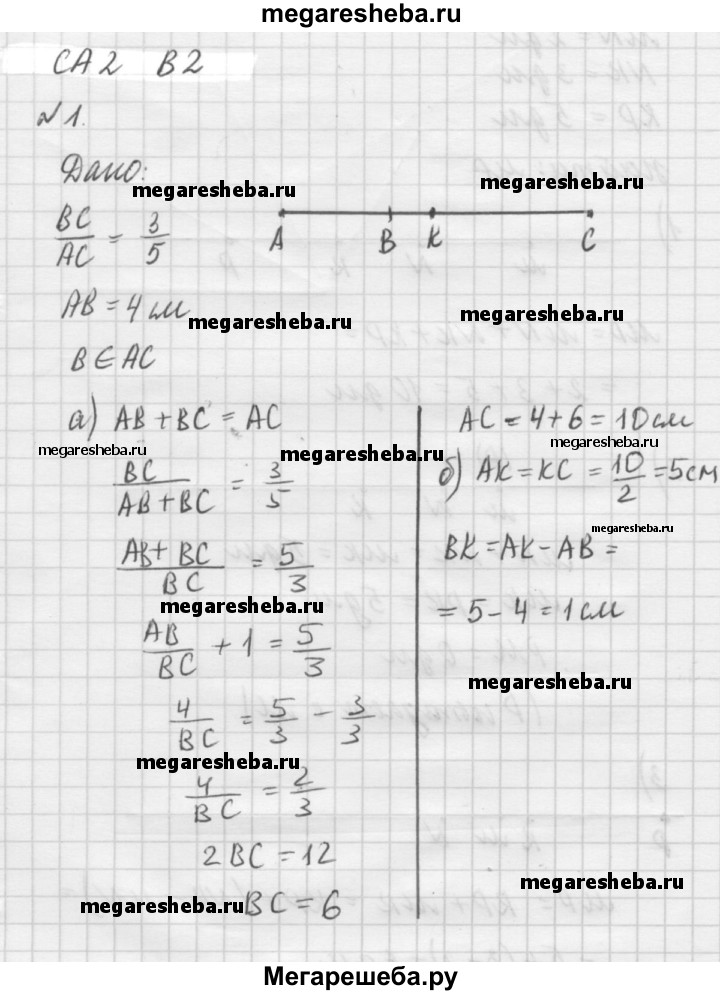 megaresheba.ru
СА2 В2
№1.
Дано:
megaresheba.ru
megaresheba.ru
BC/AC = 3/5
A B K C
AB = 4 см
megaresheba.ru
megaresheba.ru
B ∈ AC
а) AB + BC = AC
megaresheba.ru
BC/(AB + BC) = 3/5
(AB + BC)/BC = 5/3
megaresheba.ru
AB/BC + 1 = 5/3
4/BC = 5/3 − 3/3
megaresheba.ru
4/BC = 2/3
2BC = 12
megaresheba.ru
BC = 6
AC = 4 + 6 = 10 см
megaresheba.ru
б) AK = KC = 10/2 = 5 см
megaresheba.ru
BK = AK − AB =
= 5 − 4 = 1 см
megaresheba.ru
megaresheba.ru
Мегарешеба.ру